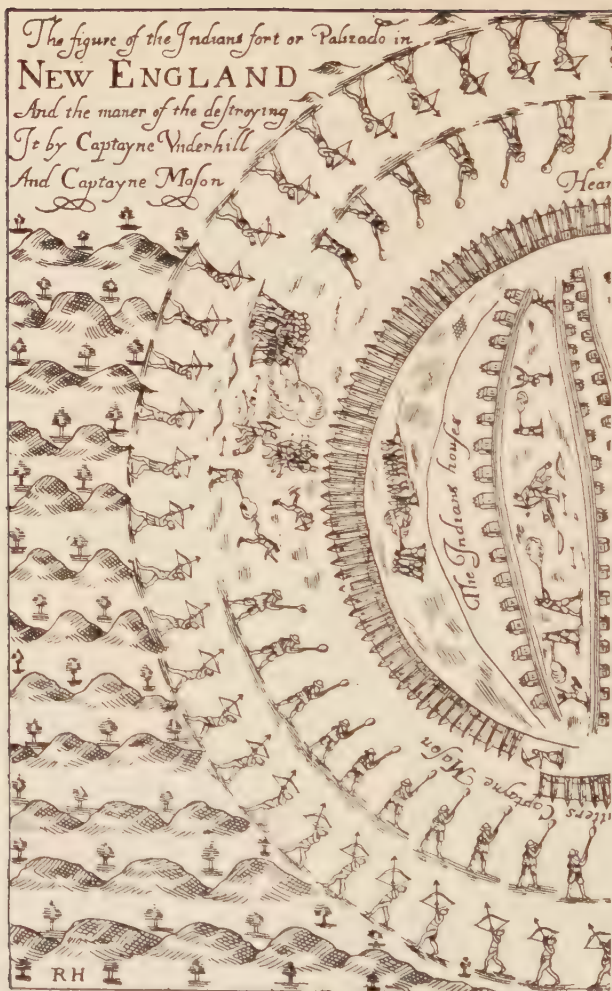 The figure of the Indians fort or Palizado in
NEW ENGLAND
And the maner of the deſtroying
It by Captayne Vnderhill
And Captayne Maſon
Hear
The Indians houſes
Captayne Maſon
RH